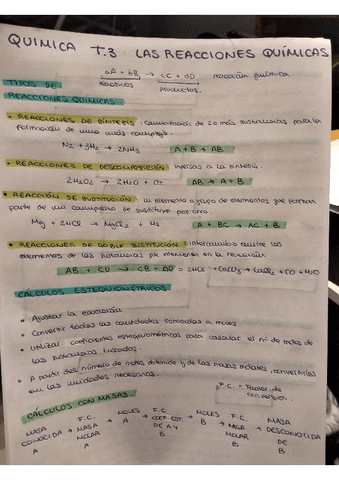 QUIMICA T.3 LAS REACCIONES QUÍMICAS
aA + bB → cC + dD reacción química
reactivos productos.
TIPOS DE
REACCIONES QUÍMICAS
• REACCIONES DE SÍNTESIS: combinación de 2 o más sustancias para la
formación de una más compleja.
N2 + 3H2 → 2NH3 A + B → AB
• REACCIONES DE DESCOMPOSICIÓN: inversas a la síntesis.
2H2O2 → 2H2O + O2 AB → A + B
• REACCIÓN DE SUSTITUCIÓN: un elemento o grupo de elementos que forman
parte de un compuesto se sustituye por otro.
Mg + 2HCl → MgCl2 + H2 A + BC → AC + B
• REACCIONES DE DOBLE SUSTITUCIÓN: intercambio entre los
elementos de las sustancias que intervienen en la reacción
AB + CD → CB + AD = 2HCl + CaCO3 → CaCl2 + CO + H2O
CÁLCULOS ESTEQUIOMÉTRICOS
• Ajustar la ecuación
• Convertir todas las cantidades conocidas a moles
• Utilizar coeficientes estequiométricos para calcular el nº de moles de
las sustancias buscadas.
• A partir del número de moles obtenido y de las masas molares, convertirlos
en las unidades necesarias.
F.C. = Factor de
conversión.
CÁLCULOS CON MASAS
MASA CONOCIDA A → F.C. MASA MOLAR A → MOLES A → F.C. COEF. EST. DE A Y B → MOLES B → F.C. MASA MOLAR B → MASA DESCONOCIDA DE B